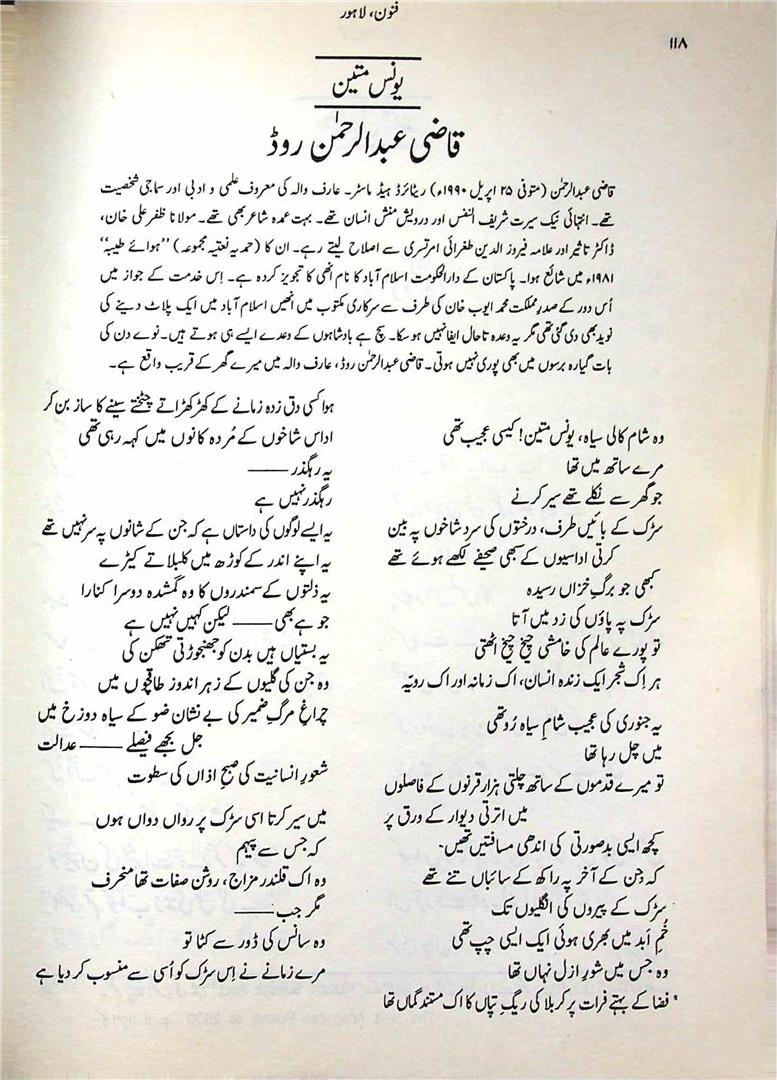 فنون، لاہور
۱۱۸
یونس متین
قاضی عبدالرحمٰن روڈ
قاضی عبدالرحمٰن (متوفی ۲۵ اپریل ۱۹۹۰ء) ریٹائرڈ ہیڈ ماسٹر۔ عارف والہ کی معروف علمی و ادبی اور سماجی شخصیت
تھے۔ انتہائی نیک سیرت شریف النفس اور درویش منش انسان تھے۔ بہت عمدہ شاعر بھی تھے۔ مولانا ظفر علی خان،
ڈاکٹر تاثیر اور علامہ فیروز الدین طغرائی امرتسری سے اصلاح لیتے رہے۔ ان کا (حمدیہ نعتیہ مجموعہ) "ہوائے طیبہ"
۱۹۸۱ء میں شائع ہوا۔ پاکستان کے دارالحکومت اسلام آباد کا نام انھی کا تجویز کردہ ہے۔ اِس خدمت کے جواز میں
اُس دور کے صدرِ مملکت محمد ایوب خان کی طرف سے سرکاری مکتوب میں انھیں اسلام آباد میں ایک پلاٹ دینے کی
نوید بھی دی گئی تھی مگر یہ وعدہ تاحال ایفا نہیں ہو سکا۔ سچ ہے بادشاہوں کے وعدے ایسے ہی ہوتے ہیں۔ نوے دن کی
بات گیارہ برسوں میں بھی پوری نہیں ہوتی۔ قاضی عبدالرحمٰن روڈ، عارف والہ میں میرے گھر کے قریب واقع ہے۔
وہ شام کالی سیاہ، یونس متین! کیسی عجیب تھی
مرے ساتھ میں تھا
جو گھر سے نکلے تھے سیر کرنے
سڑک کے بائیں طرف، درختوں کی سرد شاخوں پہ بین
کرتی اداسیوں کے سبھی صحیفے لکھے ہوئے تھے
کبھی جو برگِ خزاں رسیدہ
سڑک پہ پاؤں کی زد میں آتا
تو پورے عالم کی خامشی چیخ چیخ اٹھتی
ہر اِک شجر ایک زندہ انسان، اک زمانہ اور اک رویّہ
یہ جنوری کی عجیب شامِ سیاہ رُو تھی
میں چل رہا تھا
تو میرے قدموں کے ساتھ چلتی ہزار قرنوں کے فاصلوں
میں اترتی دیوار کے ورق پر
کچھ ایسی بدصورتی کی اندھی مسافتیں تھیں۔
کہ جِن کے آخر پہ راکھ کے سائباں تنے تھے
سڑک کے پیروں کی انگلیوں تک
خُمِ اَبد میں بھری ہوئی ایک ایسی چپ تھی
وہ جس میں شورِ ازل نہاں تھا
فضا کے بہتے فرات پر کربلا کی ریگِ تپاں کا اک مستند گماں تھا
ہوا کسی دق زدہ زمانے کے کھڑکھڑاتے چٹختے سینے کا ساز بن کر
اداس شاخوں کے مُردہ کانوں میں کہہ رہی تھی
یہ رہگذر ——
رہگذر نہیں ہے
یہ ایسے لوگوں کی داستاں ہے کہ جن کے شانوں پہ سر نہیں تھے
یہ اپنے اندر کے کوڑھ میں کلبلاتے کیڑے
یہ ذلتوں کے سمندروں کا وہ گمشدہ دوسرا کنارا
جو ہے بھی —— لیکن کہیں نہیں ہے
یہ بستیاں ہیں بدن کو جھنجوڑتی تھکن کی
وہ جن کی گلیوں کے زہر اندوز طاقچوں میں
چراغِ مرگِ ضمیر کی بے نشان ضو کے سیاہ دوزخ میں
جل بجھے فیصلے —— عدالت
شعورِ انسانیت کی صبحِ اذاں کی سطوت
میں سیر کرتا اسی سڑک پر رواں دواں ہوں
کہ جس سے پیہم
وہ اک قلندر مزاج، روشن صفات تھا منحرف
مگر جب ——
وہ سانس کی ڈور سے کٹا تو
مرے زمانے نے اِس سڑک کو اُسی سے منسوب کر دیا ہے